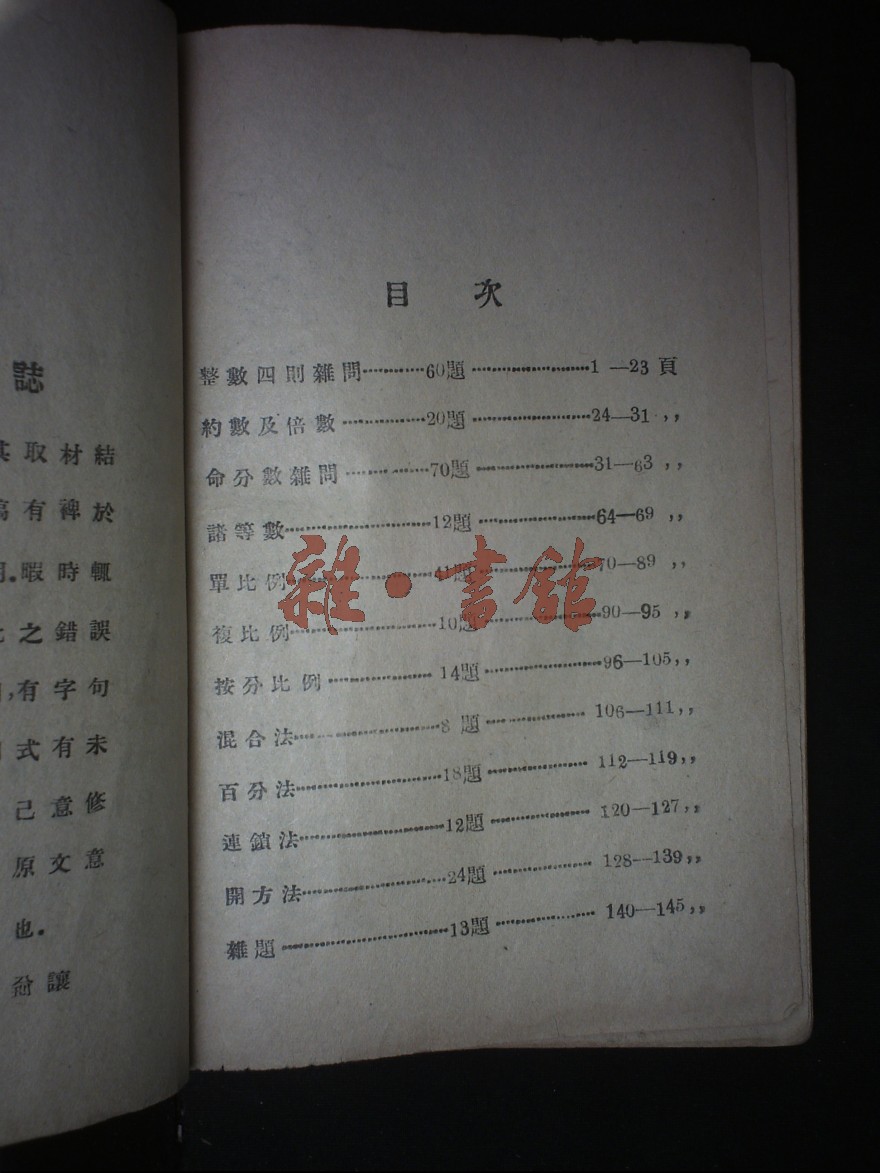 誌
取材結
有裨於
暇時輒
之錯誤
有字句
式有未
己意修
原文意
也。
讓
目 次
整數四則雜問…………60題………………1—23頁
約數及倍數…………20題………………24—31,,
命分數雜問…………70題………………31—63,,
諸等數…………12題………………64—69,,
單比例…………41題………………70—89,,
複比例…………10題………………90—95,,
按分比例…………14題………………96—105,,
混合法…………8題………………106—111,,
百分法…………18題………………112—119,,
連鎖法…………12題………………120—127,,
開方法…………24題………………128—139,,
雜題…………13題………………140—145,,
雜·書館